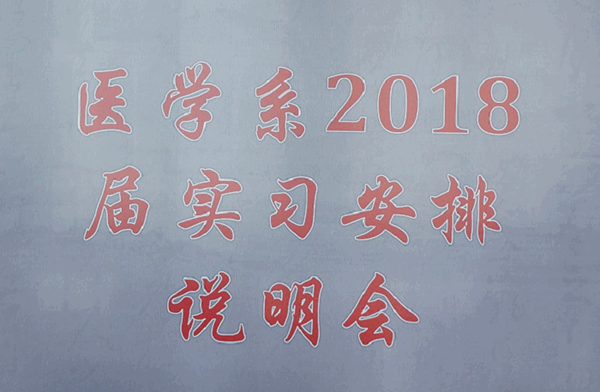 医学系2018
届实习安排
说明会